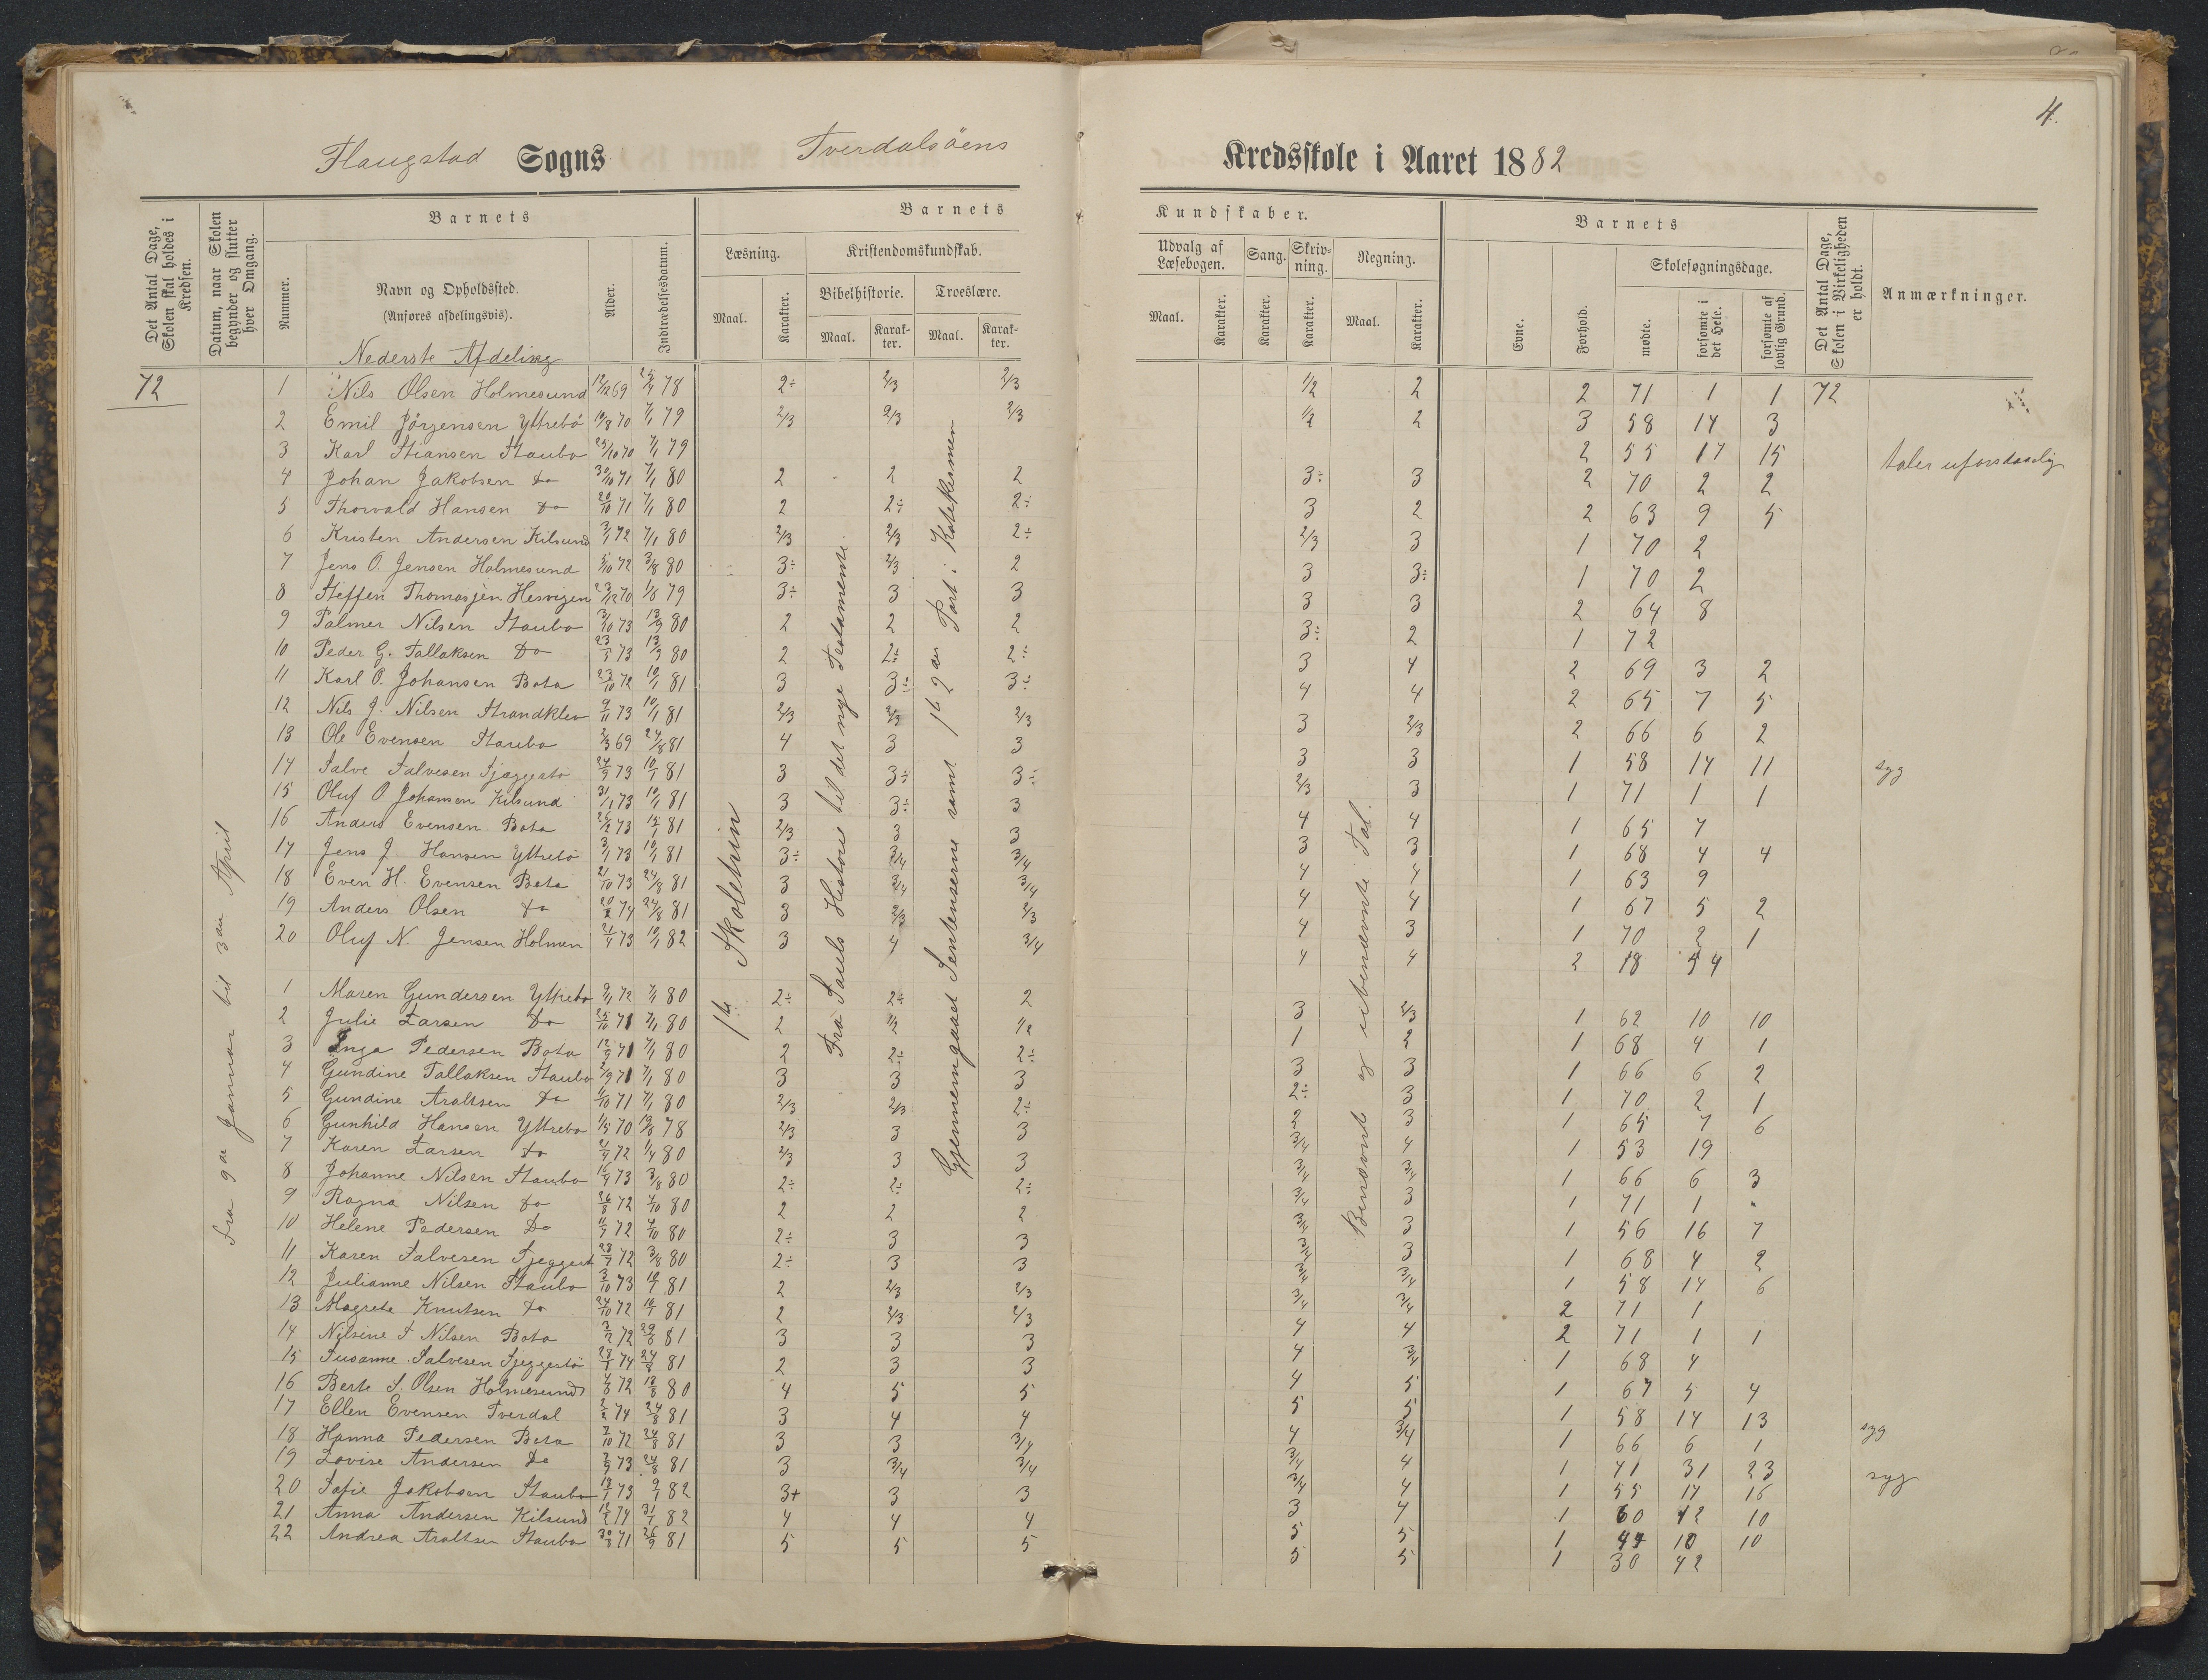 4.
Flaugstad Sogns Tverdalsöens Kredsskole i Aaret 1882
Det Antal Dage, Skolen skal holdes i Kredsen.
Datum, naar Skolen begynder og slutter hver Omgang.
Barnets
Nummer.
Navn og Opholdssted.
(Anføres afdelingsvis).
Alder.
Indtrædelsesdatum.
Barnets Kundskaber.
Læsning.
Maal. Karakter.
Kristendomskundskab.
Bibelhistorie. Troeslære.
Maal. Karakter. Maal. Karakter.
Udvalg af Læsebogen.
Maal. Karakter.
Sang. Karakter.
Skrivning. Karakter.
Regning.
Maal. Karakter.
Barnets
Evne. Forhold.
Skolesøgningsdage.
mødte. forsømte i det Hele. forsømte af lovlig Grund.
Det Antal Dage, Skolen i Virkeligheden er holdt.
Anmærkninger.
Nederste Afdeling
72
Fra 9de Januar til 3die April
1ste Skoletrin
Fra Sauls Historie til det nye Testamente.
Gjennemgaaet Sentenserne samt 1ste 2den Part i Katekismen
Benævnte og ubenævnte Tal.
1 Nils Olsen Holmesund 12/12 69 25/4 78 2÷ 2/3 2/3 1/2 2 2 71 1 1 72
2 Emil Jörgensen Yttrebö 10/8 70 7/1 79 2/3 2/3 2/3 1/2 2 3 58 14 3
3 Karl Stiansen Staubo 25/10 70 7/1 79 2 55 17 15 taler uforstaaelig
4 Johan Jakobsen do 30/10 71 7/1 80 2 2 2 3÷ 3 2 70 2 2
5 Thorvald Hansen do 20/10 71 7/1 80 2 2÷ 2÷ 3 2 2 63 9 5
6 Kristen Andersen Kilsund 3/1 72 7/1 80 2/3 2/3 2÷ 2/3 3 1 70 2
7 Jens O. Jensen Holmesund 5/10 72 3/8 80 3÷ 2/3 2 3 3÷ 1 70 2
8 Steffen Thomasjen Hesvegen 23/12 70 1/8 79 3÷ 3 3 3 3 2 64 8
9 Palmer Nilsen Staubo 3/10 73 13/9 80 2 2 2 3÷ 2 1 72
10 Peder G. Tallaksen Do 23/5 73 13/9 80 2 2÷ 2÷ 3 4 2 69 3 2
11 Karl O. Johansen Bota 23/10 72 10/1 81 3 3÷ 3÷ 4 4 2 65 7 5
12 Nils J. Nilsen Strandklev 9/11 73 10/1 81 2/3 2/3 2/3 3 2/3 2 66 6 2
13 Ole Evensen Staubo 2/3 69 24/8 81 4 3 3 3 3 1 58 14 11 syg
14 Salve Salvesen Fjæggestö 24/9 73 10/1 81 3 3÷ 3÷ 2/3 3 1 71 1 1
15 Oluf O Johansen Kilsund 31/1 73 10/1 81 3 3÷ 3 4 4 1 65 7
16 Anders Evensen Bota 26/2 73 15/1 81 2/3 3 3 3 3 1 68 4 4
17 Jens J. Hansen Yttrebö 3/1 73 10/1 81 3÷ 3/4 3/4 4 4 1 63 9
18 Even H. Evensen Bota 21/10 73 24/8 81 3 3/4 3/4 4 4 1 67 5 2
19 Anders Olsen do 20/2 74 24/8 81 3 2/3 2/3 4 3 1 70 2 1
20 Oluf N. Jensen Holmen 21/4 73 10/1 82 3 4 3/4 4 4 2 18 54
1 Maren Gundersen Yttrebø 9/1 72 7/1 80 2÷ 2÷ 2 3 2/3 1 62 10 10
2 Julie Larsen Do 25/10 71 7/1 80 2 1/2 1/2 1 2 1 68 4 1
3 Inga Pedersen Bota 12/9 71 7/1 80 2 2÷ 2÷ 3 3 1 66 6 2
4 Gundine Tallaksen Staubo 2/9 71 7/1 80 3 3 3 2÷ 3 1 70 2 1
5 Gundine Araltsen Do 1/10 71 7/1 80 2/3 2/3 2÷ 2 3 1 65 7 6
6 Gunhild Hansen Yttrebø 1/5 70 19/8 78 2/3 3 3 3/4 4 1 53 19
7 Karen Larsen do 21/4 72 1/4 80 2/3 3 3 3/4 3/4 1 66 6 3
8 Johanne Nilsen Staubo 16/4 73 3/8 80 2÷ 2÷ 2÷ 3/4 3 1 71 1
9 Ragna Nilsen do 26/8 72 4/10 80 2 2 2 3/4 3 1 56 16 7
10 Helene Pedersen Do 11/9 72 4/10 80 2÷ 3 3 3/4 3 1 68 4 2
11 Karen Salvesen Fjeggest 28/7 72 3/8 80 2÷ 3 3 3/4 3/4 1 58 14 6
12 Julianne Nilsen Staubo 3/10 73 10/1 81 2 2/3 2/3 3/4 3/4 2 71 1
13 Magrete Knutsen do 24/10 72 10/1 81 2 2/3 2/3 4 4 2 71 1 1
14 Nilsine S Nilsen Bota 3/2 72 29/8 81 3 3 3 4 3/4 1 68 4
15 Susanne Salvesen Fjeggestö 28/1 74 24/8 81 2 3 3 4 5 1 67 5 4
16 Berte S. Olsen Holmesund 4/8 72 13/8 80 4 5 5 5 5 1 58 14 13 syg
17 Ellen Evensen Tverdal 2/2 74 24/8 81 3 4 4 4 3/4 1 66 6 1
18 Hanna Pedersen Bota 7/10 72 24/8 81 3 3 3/4 3/4 4 1 41 31 23 syg
19 Lovise Andersen Do 7/9 73 24/8 81 3 3/4 3/4 3/4 4 1 55 17 16
20 Sofie Jakobsen Staubo 19/1 73 9/1 82 3+ 3 3 3 4 1 60 12 10
21 Anna Andersen Kilsund 12/2 74 31/1 82 4 4 4 5 5 1 44 10 10
22 Andrea Araltsen Staubo 30/8 71 26/9 81 5 5 5 5 5 1 30 42